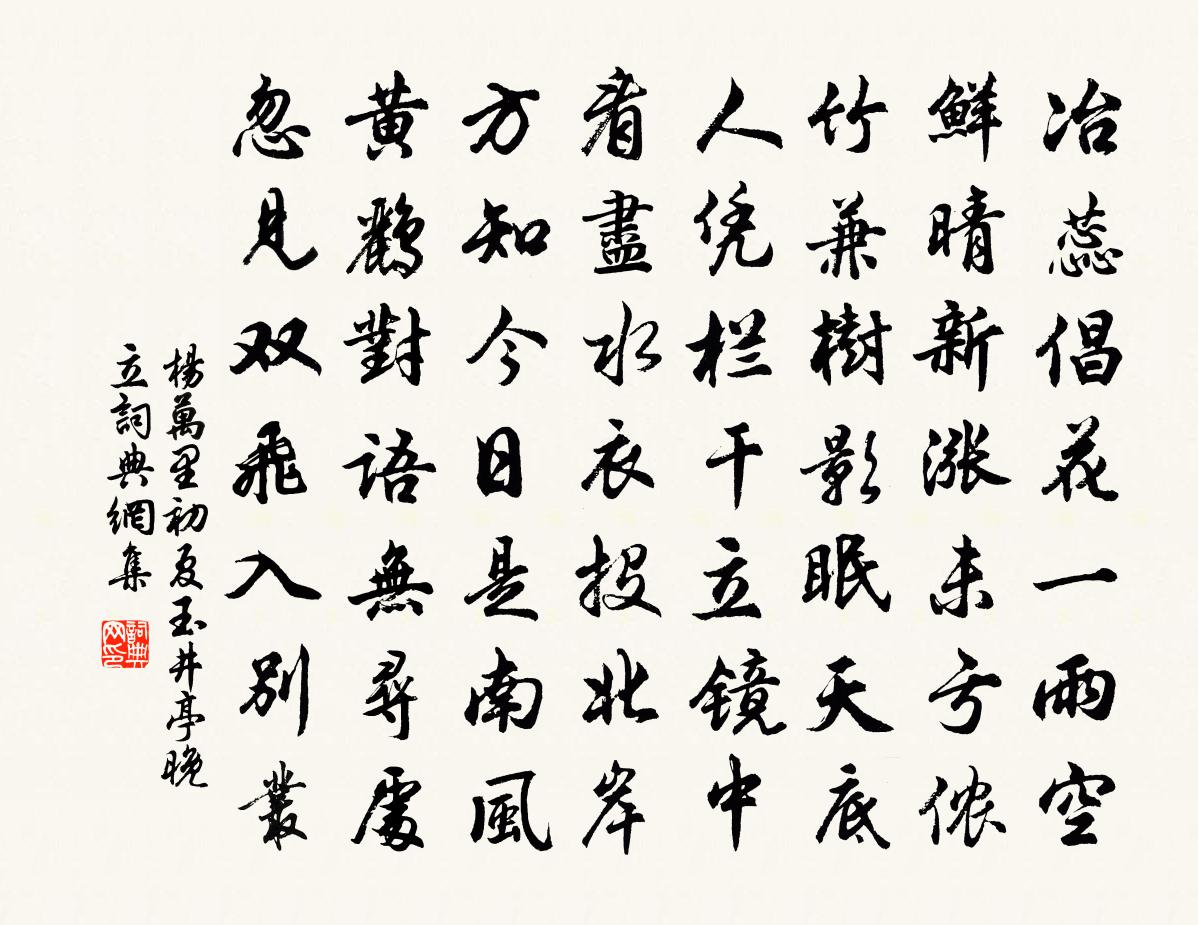 冶蕊倡花一雨空
鮮晴新漲未亏侬
竹兼樹影眠天底
人凭栏干立镜中
看盡水衣投北岸
方知今日是南風
黄鸝對語無尋處
忽見双飛入别叢
楊萬里初夏玉井亭晚
立詞典網集
詞典网印